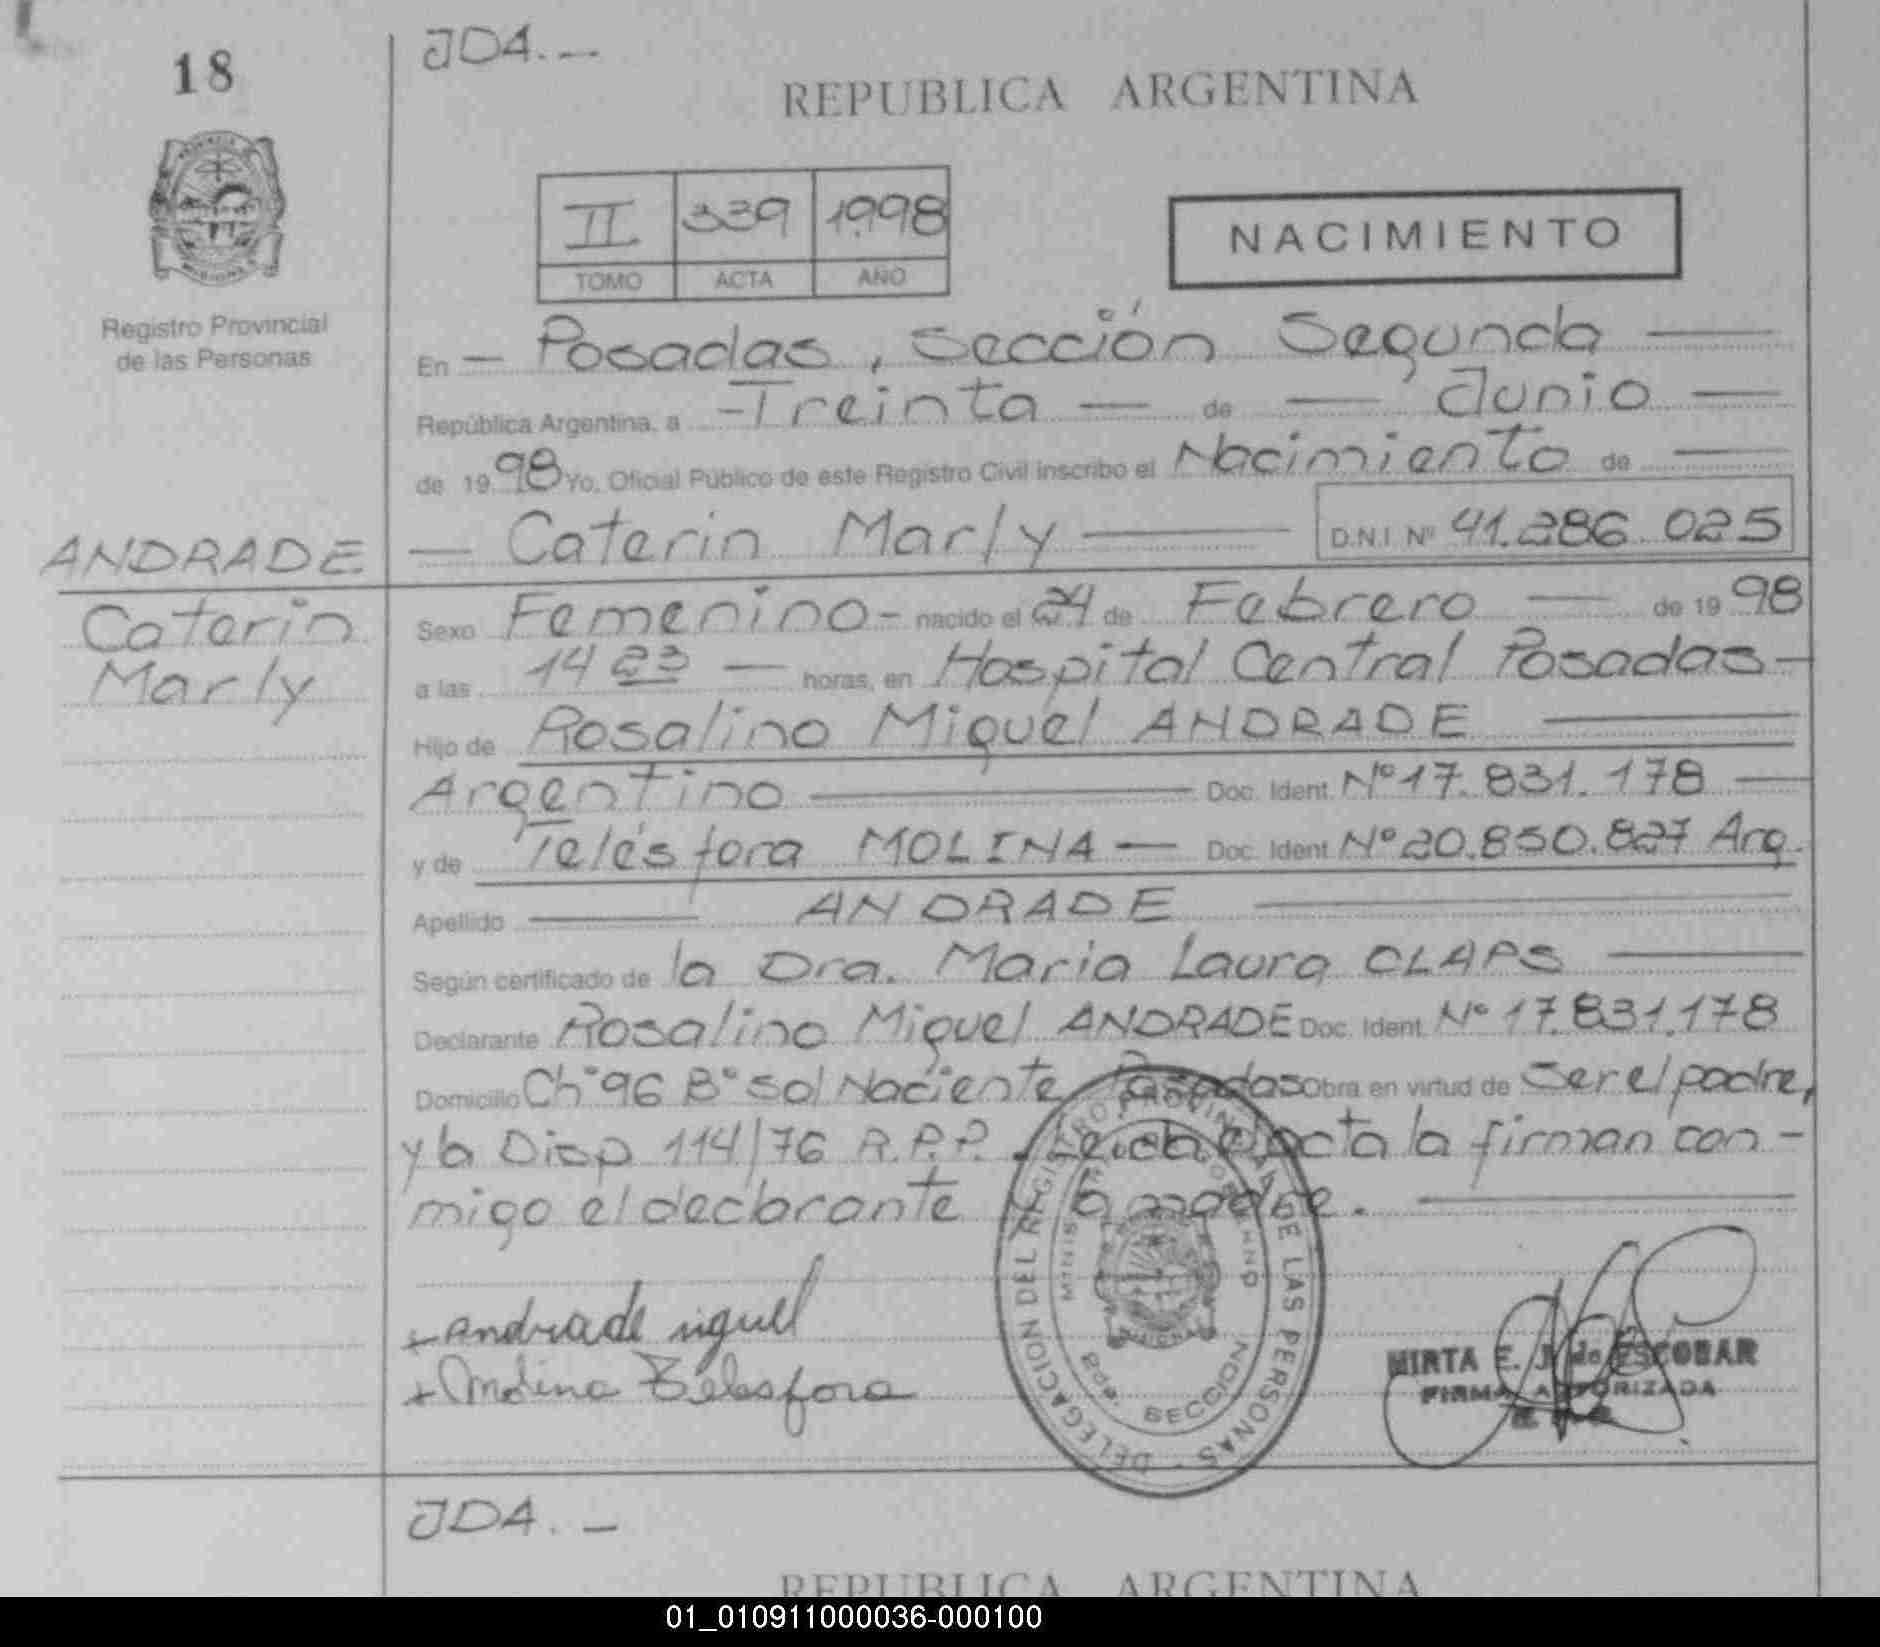 18
JDA.—
REPUBLICA ARGENTINA
II 339 1998
TOMO ACTA AÑO
NACIMIENTO
Registro Provincial
de las Personas
En — Posadas, Sección Segunda —
República Argentina, a — Treinta — de — Junio —
de 1998 Yo, Oficial Público de este Registro Civil inscribo el Nacimiento de —
— Caterin Marly — D.N.I. Nº 41.286.025
ANDRADE
Caterin
Marly
Sexo Femenino - nacido el 24 de Febrero — de 1998
a las 14 23 — horas, en Hospital Central Posadas -
Hijo de Rosalino Miguel ANDRADE —
Argentino — Doc. Ident. Nº 17.831.178 —
y de Telésfora MOLINA — Doc. Ident. Nº 20.850.827 Arg.
Apellido — ANDRADE —
Según certificado de la Dra. Maria Laura CLAPS —
Declarante Rosalino Miguel ANDRADE Doc. Ident. Nº 17.831.178
Domicilio Ch° 96 B° Sol Naciente Posadas Obra en virtud de Ser el padre,
y la Disp 114/76 R.P.P. Leida el acta la firman con-
migo el declarante y la madre. —
+ andrade miguel
+ Molina Telesfora
DELEGACION DEL REGISTRO PROVINCIAL DE LAS PERSONAS
SECCION
MIRTA E. J. de ESCOBAR
FIRMA AUTORIZADA
JDA.—
REPUBLICA ARGENTINA
01_010911000036-000100